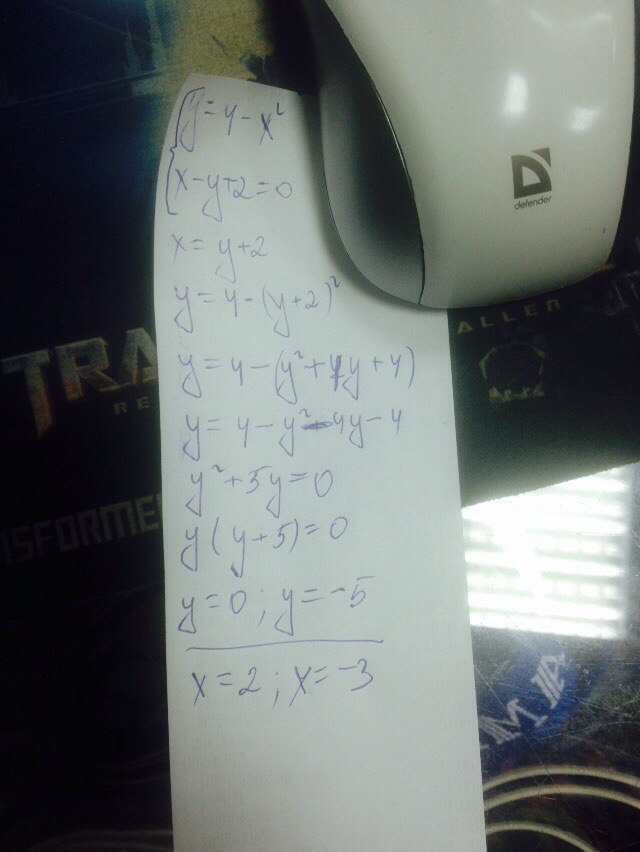 y=4-x²
x-y+2=0
x=y+2
y=4-(y+2)²
y=4-(y²+4y+4)
y=4-y²-4y-4
y²+5y=0
y(y+5)=0
y=0; y=-5
x=2; x=-3
defender
ALLEN
TRA
RE
NSFORME